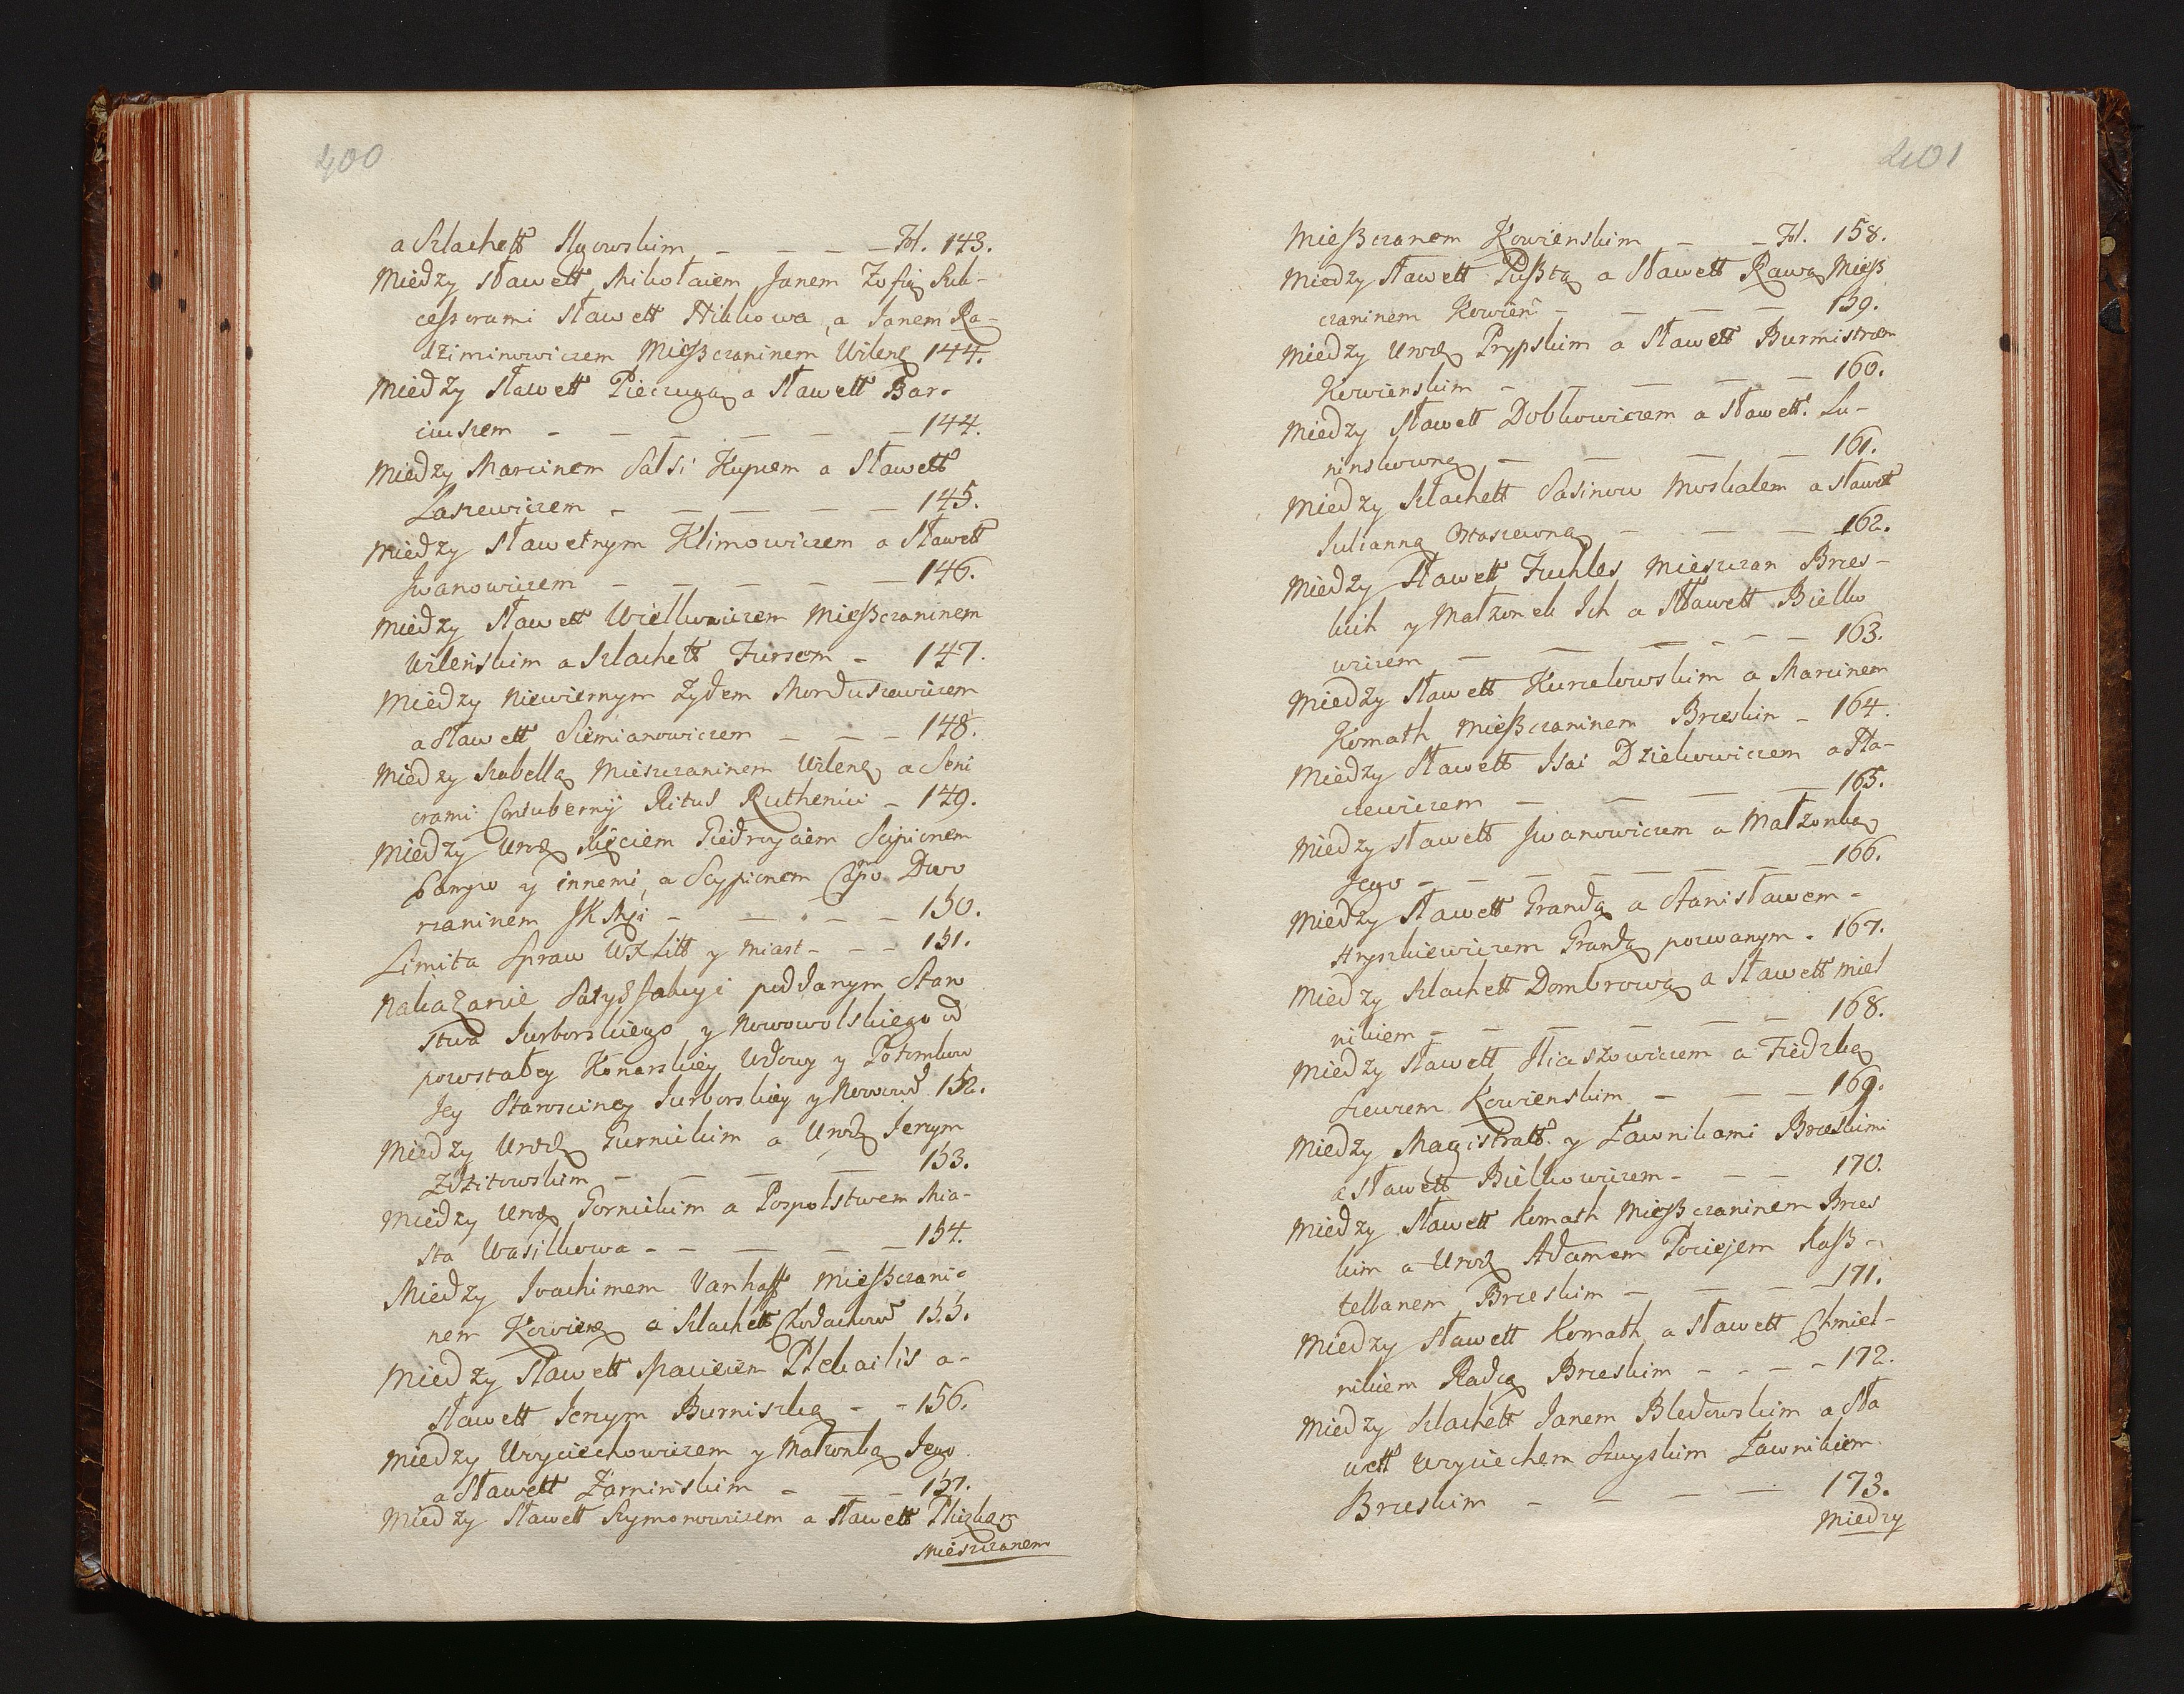 400
a Szlachett Ilgowskim – – – – Fol. 143.
Między sławett Mikołaiem, Janem Zofią Suk-
cessorami Sławett Hikkowa, a Janem Ra-
dziminowiczem Miesczaninem Wilens 144.
Między sławett Pieczugą a Sławett Bar-
ciuszem – – – – – – 144.
Między Marcinem Salsi Kupcem a Sławett
Laszewiczem – – – – – 145.
Między Sławetnym Klimowiczem a Sławett
Jwanowiczem – – – – – 146.
Między Sławett Wielkowiczem Mießczaninem
Wilenskim a Szlachett Fursem – 147.
Między Niewiernym Zydem Morduszewiczem
a Sławett Siemianowiczem – – – 148.
Między Szabellą Mieszczaninem Wilens a Seni
orami Contubernij Ritus Ruthenici – 149.
Między Urodz Xięciem Giedroyciem Scipionem
y innemi, a Scypionem Campo Dwo
rzaninem JKMśći – – – – 150.
Limita Spraw WXLitt y Miast – – – 151.
Nakazanie Satysfakcyi poddanym Staro
stwa Jurborskiego y Nowowolskiego od
powstałey Konarskiey Wdowy y Potomkow
Jey Starosciney Jurborskiey y Nowowol 152.
Między Urodz Gurnickim a Urodz Jerzym
Zdzitowskim – – – – – 153.
Między Urodz Gornickim a Pospolstwem Mia-
sta Wasilkowa – – – – – 154.
Między Joachimem Vanhaff Mießczani-
nem Kowiens a Szlachett Chodachowd 155.
Między Sławett Spacierem Ptchailis a-
sławett Jerzym Burniszką – – 156.
Między Woyciechowiczem y Małzonką Jego
a Sławett Zaminskim – – – 157.
Między Sławett Szymonowiczem a sławett Pliszką
Mieszczanem
401
Mießczanem Kowienskim – – Fol. 158.
Między sławett Pußtą a Sławett Rawą Mieß
czaninem Kowien – – – – 159.
Między Urodz Prypskim a Sławett Burmistrzem
Kowienskim – – – – – 160.
Między sławett Dobkowiczem a sławett. Lu-
ninskowną – – – – 161.
Między Szlachett Sasinow Moskalem a sławet
Julianną Ostaszewną – – – 162.
Między Sławett Fuchles Mieszczan Brzes-
kich y Małzonek Ich a Sławett Bielko
wiczem – – – – – – 163.
Między Sławett Kurzelowskim a Marcinem
Komath Mießczaninem Brzeskim – 164.
Między Sławett Isai Dziekowiczem a Sta-
czewiczem – – – – 165.
Między sławett Jwanowiczem a Małzonką
Jego – – – – – – – 166.
Między Sławett Grandą a Stanisławem-
Hryszkiewiczem Grandą pozwanym – 167.
Między Szlachett Dombrową a Sławett Miel
nikiem – – – – – – 168.
Między sławett Iliaszowiczem a Fiedzką
Szewcem Kowienskim – – – 169.
Między Magistratt. y Ławnikami Brzeskimi
a Sławett Bielkowiczem – – – 170.
Między Sławett Komath Mießczaninem Brzes
kim a Urodz Adamem Pociejem Kaß-
tellanem Brzeskim – – – – 171.
Między sławett Komath, a sławett Chmiel-
nikiem Radcą Brzeskim – – – – 172.
Między Szlachett Janem Bledowskim a Sła
wett Woyciechem Szuyskim Ławnikiem
Brzeskim – – – – 173.
Między